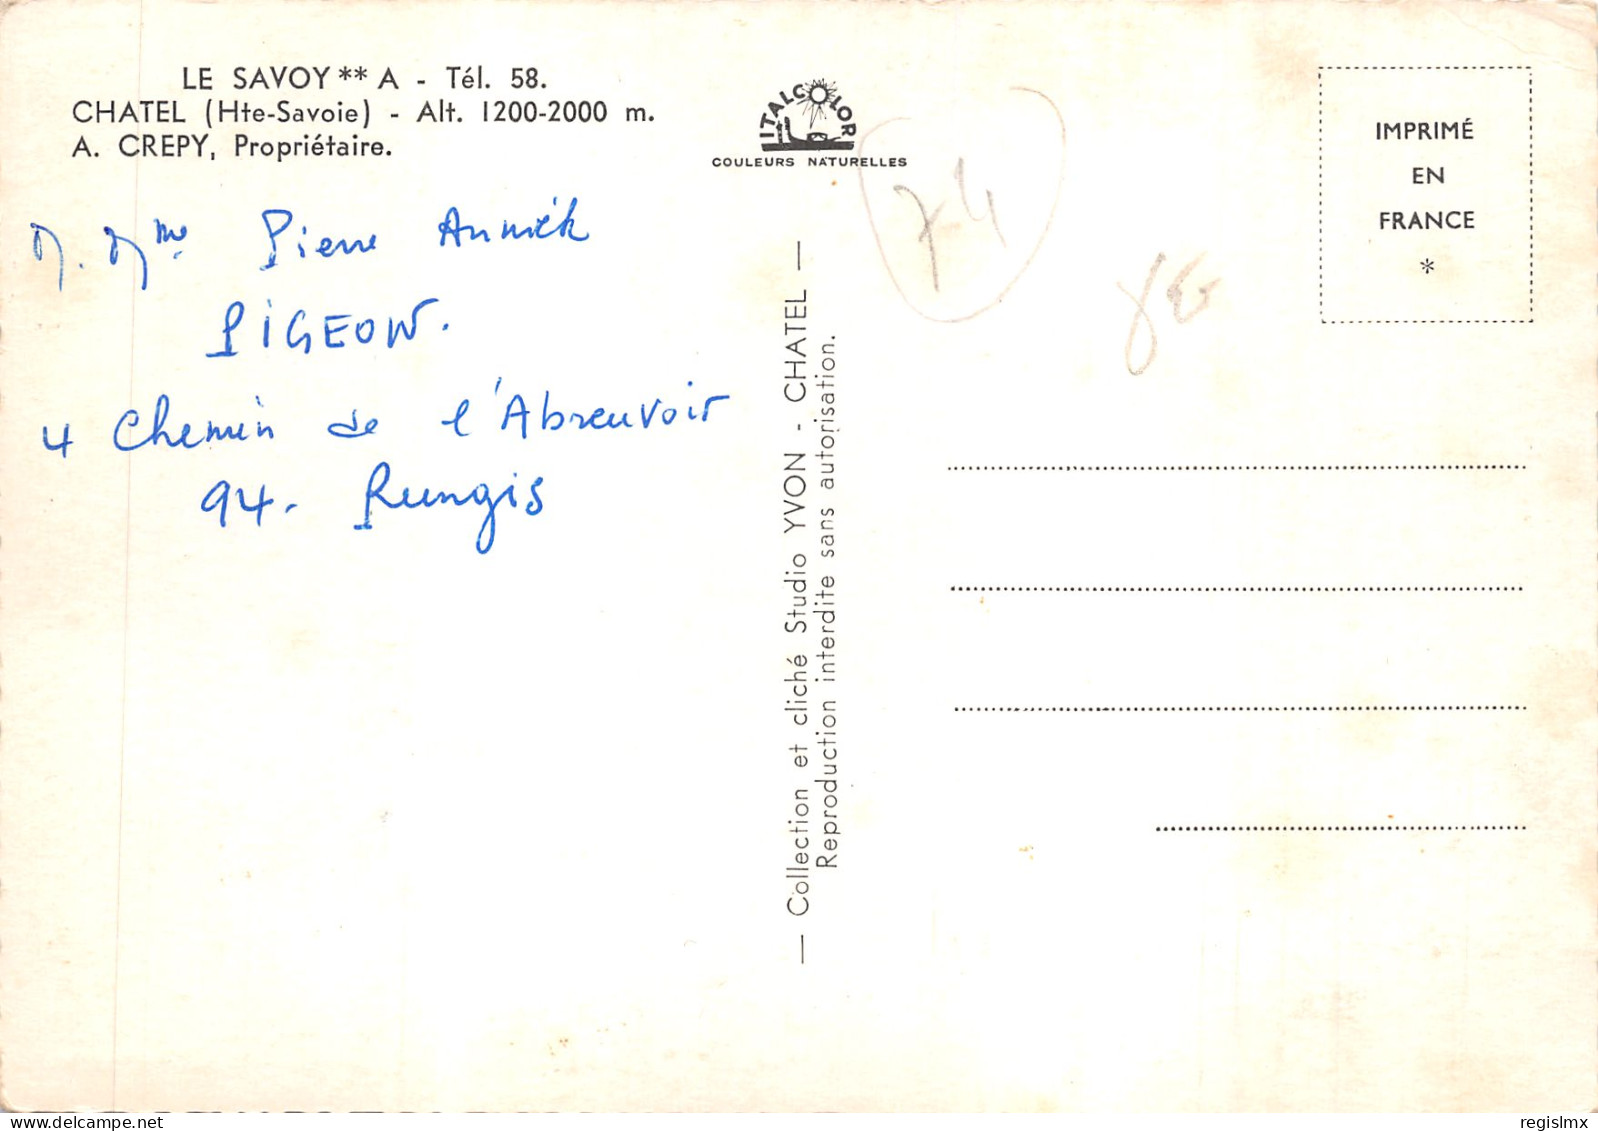 LE SAVOY ** A - Tél. 58.
CHATEL (Hte-Savoie) - Alt. 1200-2000 m.
A. CREPY, Propriétaire.
ITALCOLOR
COULEURS NATURELLES
IMPRIMÉ
EN
FRANCE
*
M. Mme Pierre Annick
PIGEON.
4 Chemin de l'Abreuvoir
94. Rungis
74
— Collection et cliché Studio YVON - CHATEL —
Reproduction interdite sans autorisation.
regislmx